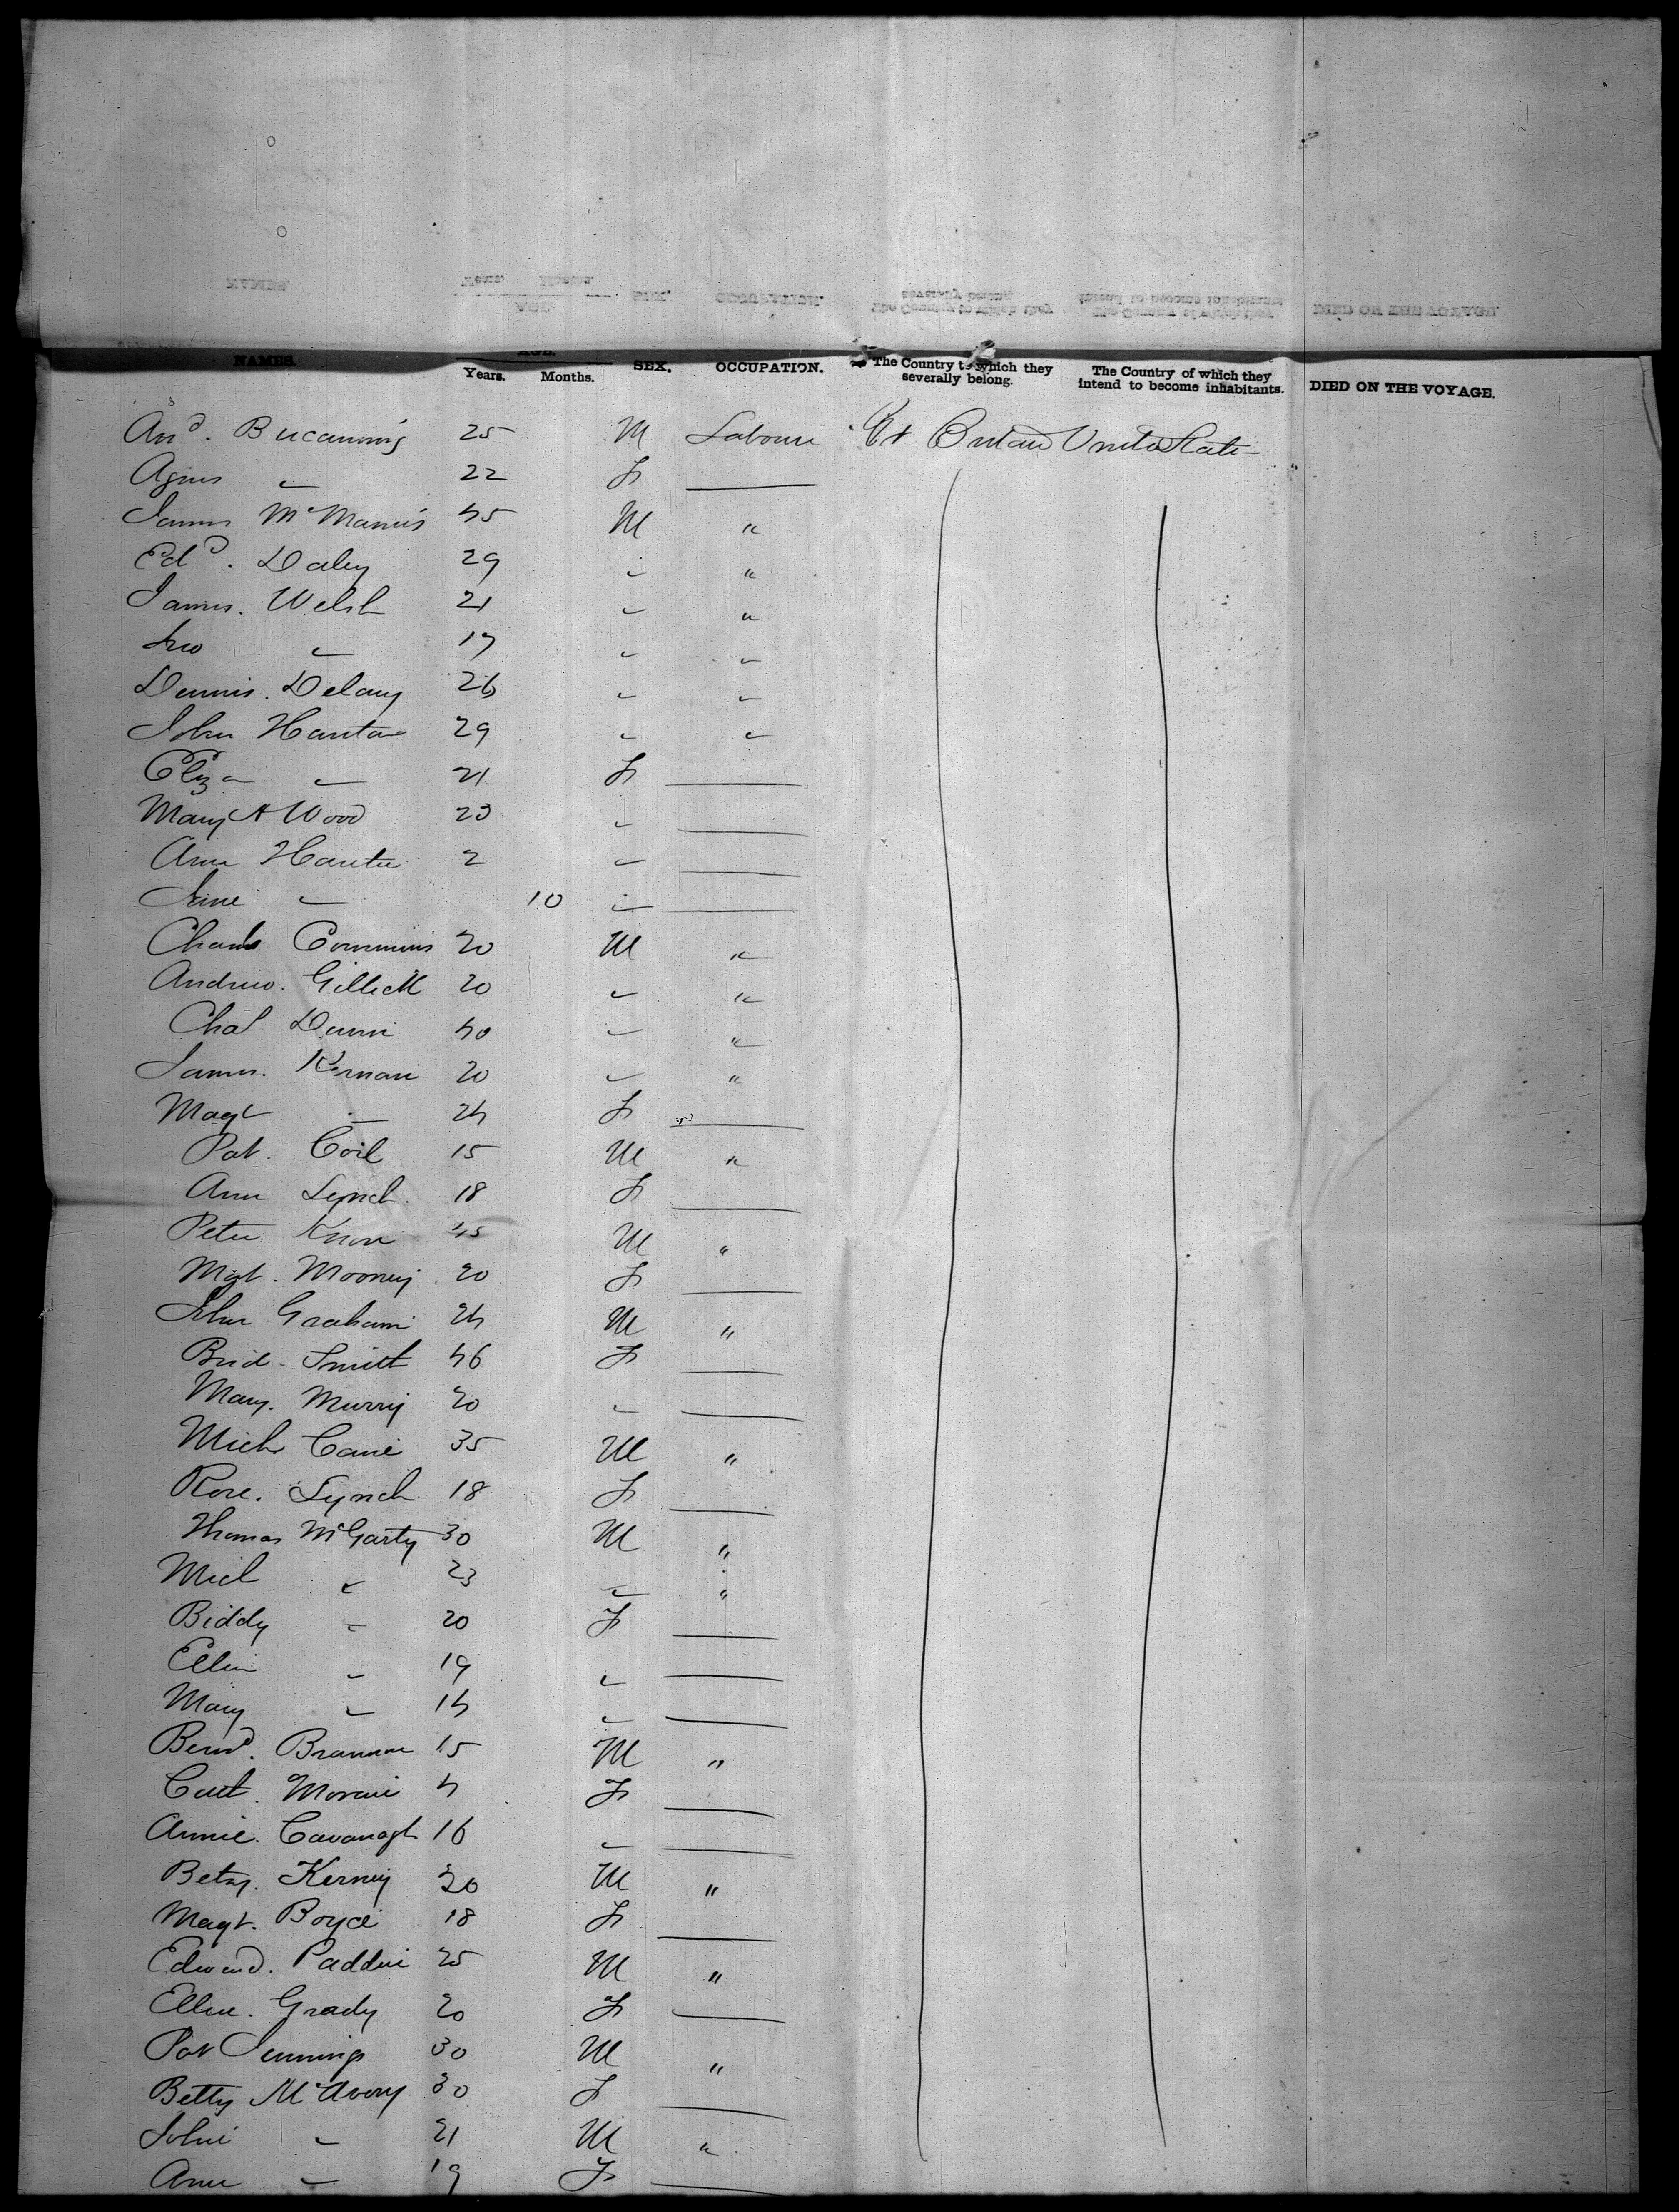 NAMES. AGE. Years. Months. SEX. OCCUPATION. The Country to which they severally belong. The Country of which they intend to become inhabitants. DIED ON THE VOYAGE.
And. 25 M Labourer Gt Britain United States
Agnes " 22 F
James McManus 45 M "
Edd. Daley 29 " "
James. Welsh 21 " "
Jno " 17 " "
Dennis. Delany 26 " "
John Hunter 29 " "
Eliza " 21 F
Mary A Wood 23 "
Ann Hunter 2 "
Jane " 10 "
Charls Commins 20 M "
Andrew. 20 " "
Chas Dunn 40 " "
James. Kernan 20 " "
Magt " 24 F
Pat. Coil 15 M "
Ann Lynch. 18 F
Peter 45 M "
Mgt. Mooney 20 F
John Graham 24 M "
Brid. Smith 46 F
Mary. Murry 20 "
Mich Cane 35 M "
Rose. Lynch 18 F
Thomas McGarty 30 M "
Mich " 23 " "
Biddy " 20 F
Ellin " 19 "
Mary " 14 "
Bernd. Brannon 15 M "
Cath. Moran 4 F
Annie. Cavanagh 16 "
Betsy. Kerney 20 M "
Magt. Boyce 18 F
Edward. Padden 25 M "
Ellen. Grady 20 F
Pat Jennings 30 M "
Betty McAvory 30 F
John " 21 M "
Ann " 19 F